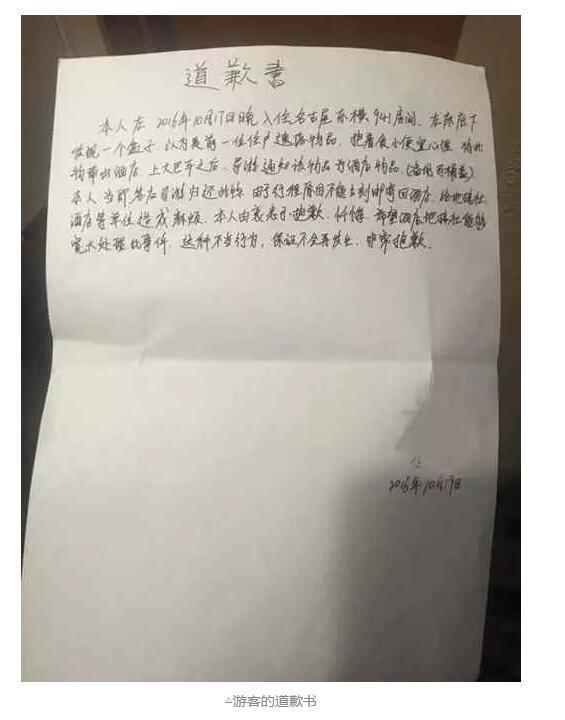 道歉書
本人在 2016年10月17日晚入住名古屋 941房间. 在床底下
发现一个盒子 以为是前一位住户遗留物品. 抱着贪小便宜心理 将此
物带出酒店. 上大巴车之后. 导游通知该物品为酒店物品 (备用马桶盖)
本人当即答应导游归还此物 由于行程原因不能立刻邮寄回酒店. 给地接社.
酒店等单位造成麻烦. 本人由衷表示抱歉. 忏悔. 希望酒店地接社能够
宽大处理此事件. 这种不当行为, 保证不会再发生. 非常抱歉.
2016年10月19日
△游客的道歉书